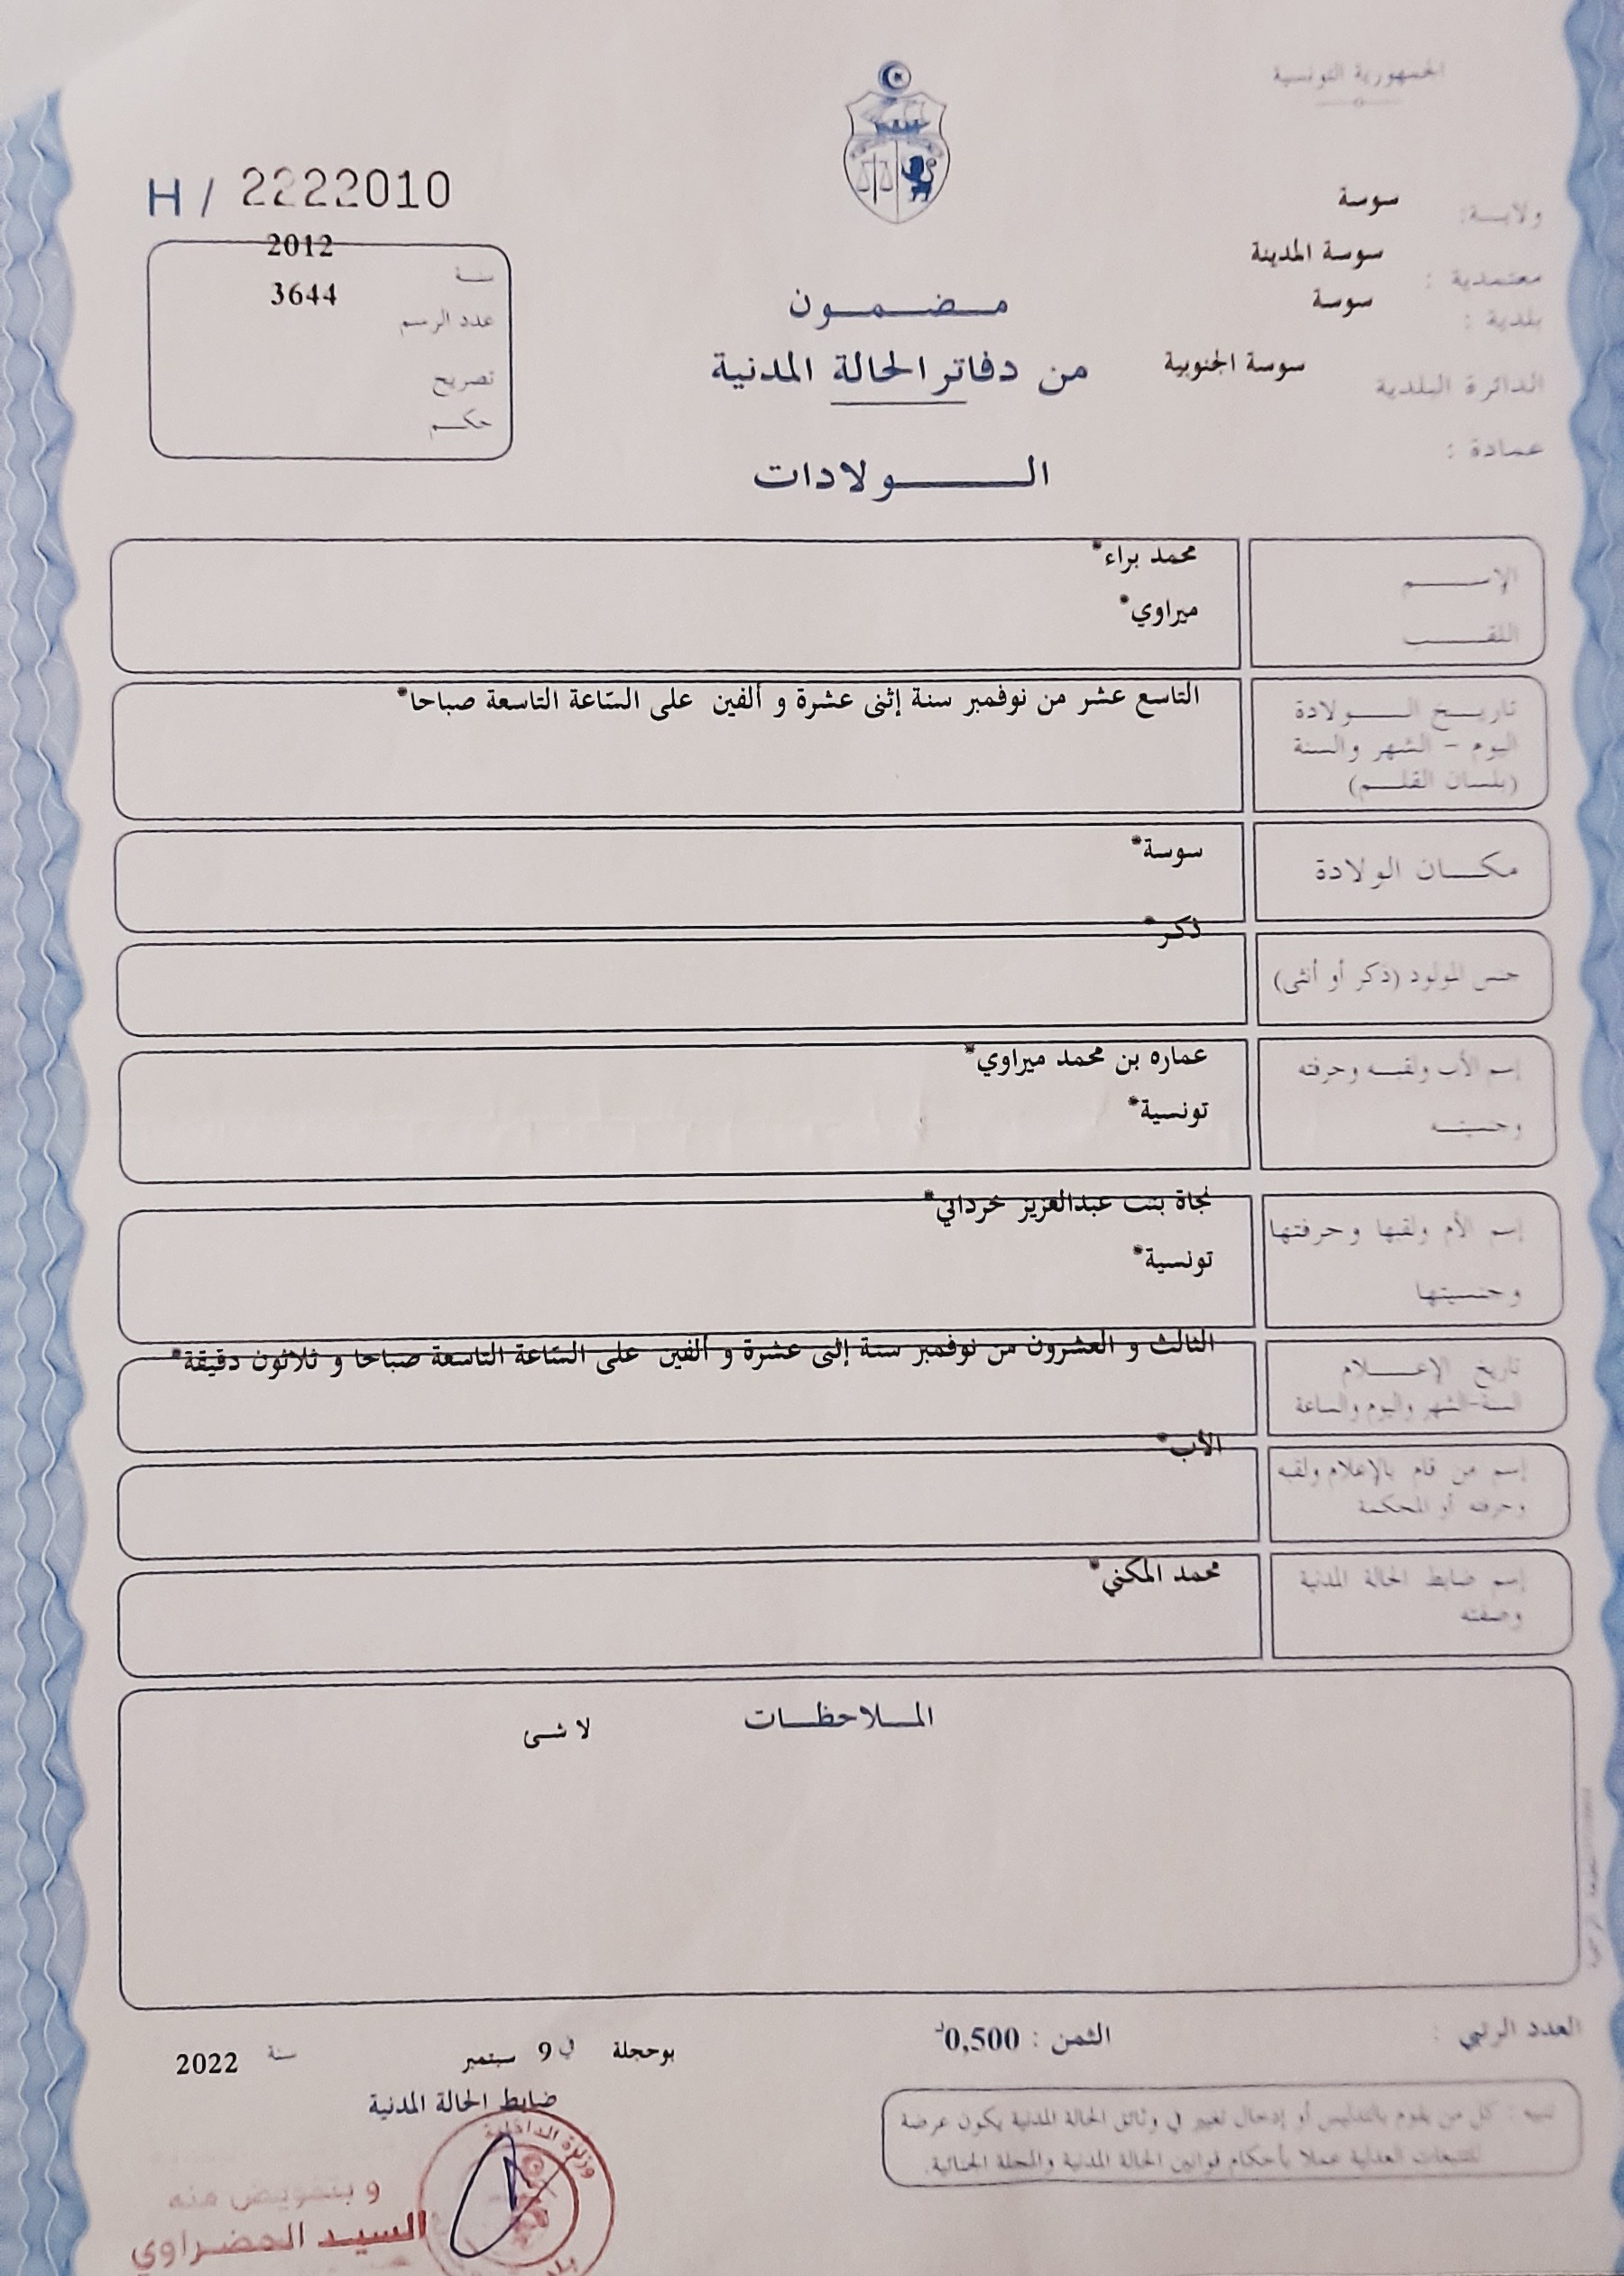 الجمهورية التونسية
ولاية: سوسة
معتمدية : سوسة المدينة
بلدية : سوسة
الدائرة البلدية سوسة الجنوبية
عمادة :
H / 2222010
سنة 2012
عدد الرسم 3644
تصريح
حكم
مضمون
من دفاتر الحالة المدنية
الولادات
الإسم محمد براء*
اللقب ميراوي*
تاريخ الولادة التاسع عشر من نوفمبر سنة إثنى عشرة و ألفين على السّاعة التاسعة صباحا*
اليوم - الشهر والسنة
(بلسان القلم)
مكان الولادة سوسة*
جنس المولود (ذكر أو أنثى) ذكر*
إسم الأب ولقبه وحرفته عماره بن محمد ميراوي*
وجنسيته تونسية*
إسم الأم ولقبها وحرفتها نجاة بنت عبدالعزيز خرداني*
وجنسيتها تونسية*
تاريخ الإعلام الثالث و العشرون من نوفمبر سنة إثنى عشرة و ألفين على السّاعة التاسعة صباحا و ثلاثون دقيقة*
السنة-الشهر واليوم والساعة
إسم من قام بالإعلام ولقبه الأب*
وحرفته أو المحكمة
إسم ضابط الحالة المدنية محمد المكني*
وصفته
الملاحظات
لا شى
العدد الرتبي :
الثمن : 0,500د
بوحجلة في 9 سبتمبر سنة 2022
ضابط الحالة المدنية
تنبيه : كل من يقوم بالتدليس أو إدخال تغيير في وثائق الحالة المدنية يكون عرضة
للتتبعات العدلية عملا بأحكام قوانين الحالة المدنية والمجلة الجنائية.
وزارة الداخلية
و بتفويض منه
السيد الخضراوي